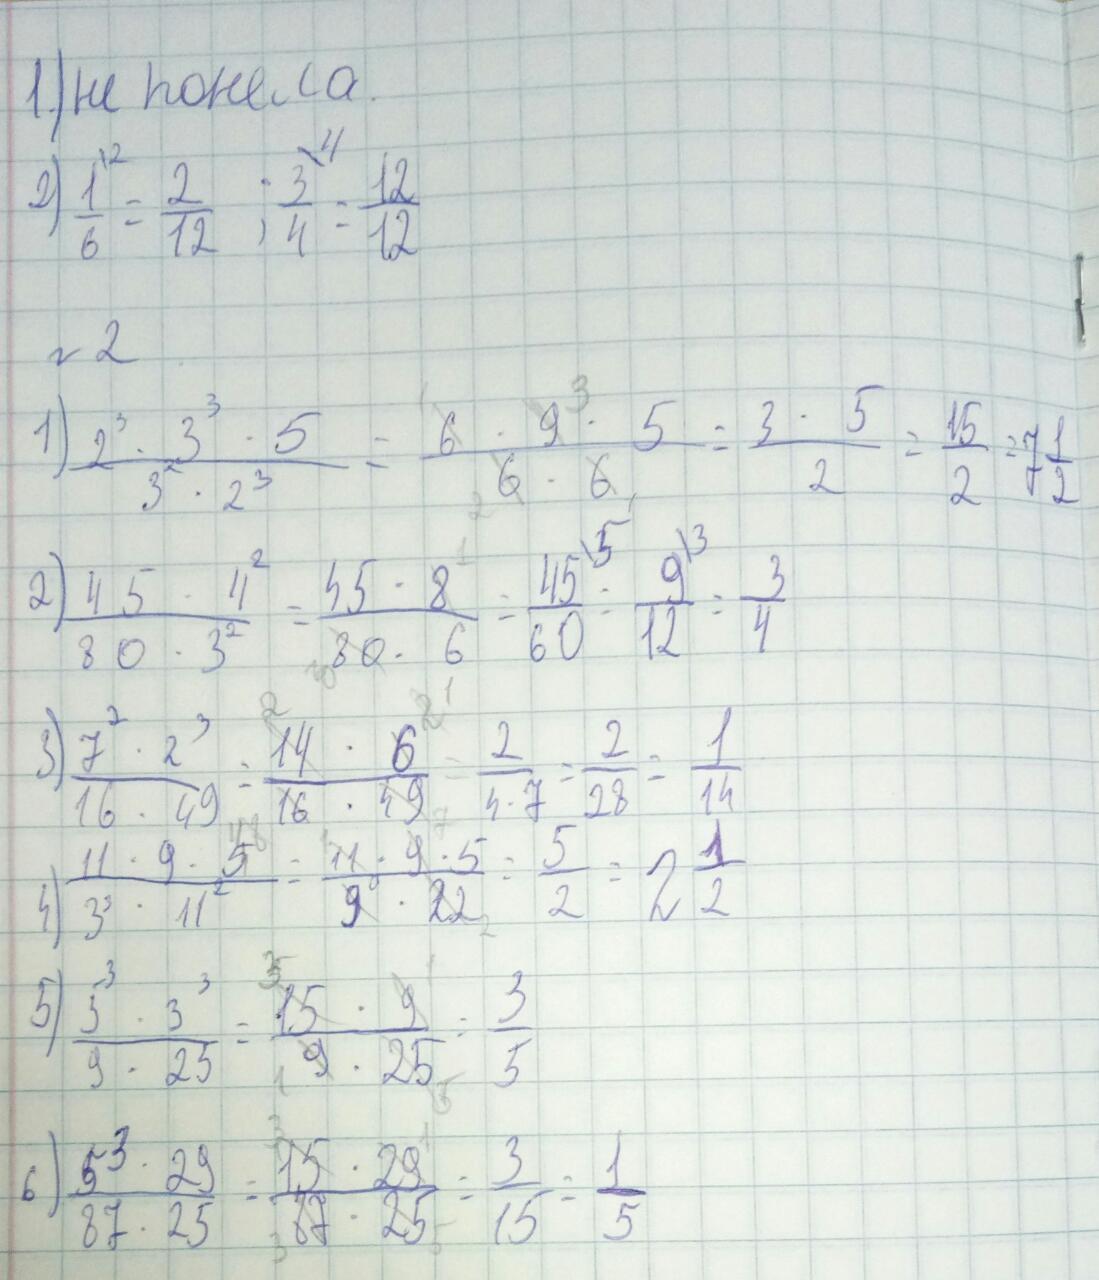 1.) не понела.
2) 1\2/6 = 2/12 ; 3\4/4 = 12/12
~ 2
1) 2³ · 3³ · 5 / 3² · 2³ = 6 · 9 3 · 5 / 6 2 · 6 1 = 3 · 5 / 2 = 15/2 = 7 1/2
2) 45 · 4² / 80 · 3² = 45 · 8 1 / 80 · 6 = 45\5/60 = 9\3/12 = 3/4
3) 7² · 2³ / 16 · 49 = 2 14 · 6 2 1 / 16 · 49 7 = 2 / 4·7 = 2/28 = 1/14
4) 11 · 9 · 5 / 3³ · 11² = 11 · 9 · 5 / 9 · 22 2 = 5/2 = 2 1/2
5) 5³ · 3³ / 9 · 25 = 3 15 · 9 1 / 9 1 · 25 5 = 3/5
6) 5³ · 29 / 87 · 25 = 3 15 · 29 1 / 87 3 · 25 5 = 3/15 = 1/5